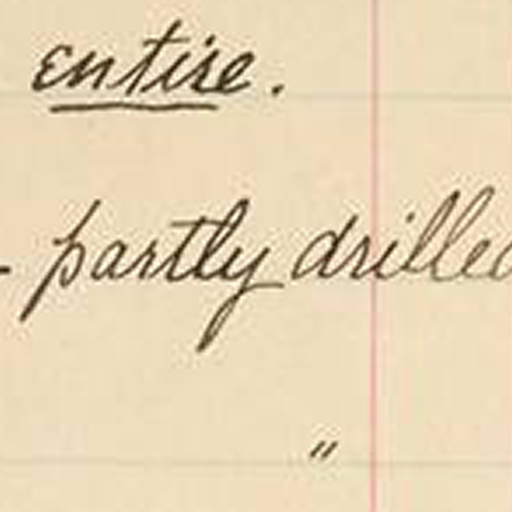 entire.
- partly drilled
"